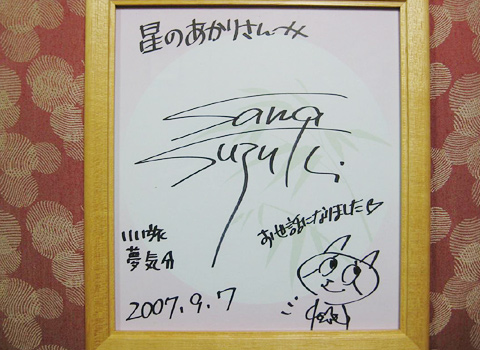 星のあかりさんへ
Sanae
Suzuki
お世話になりました♡
いい旅
夢気分
2007.9.7